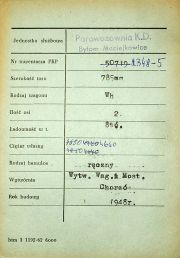 Jednostka służbowa Parowozownia K.D.
Bytom Maciejkowice
Nr inwentarza PKP 50719 8348-5
Szerokość toru 785mm
Rodzaj wagonu Wh
Ilość osi 2.
Ładowność w t.
Ciężar własny 4640
Rodzaj hamulca ręczny
Wytwórnia Wytw. Wag. & Most.
Chorzó
Rok budowy 1948r.